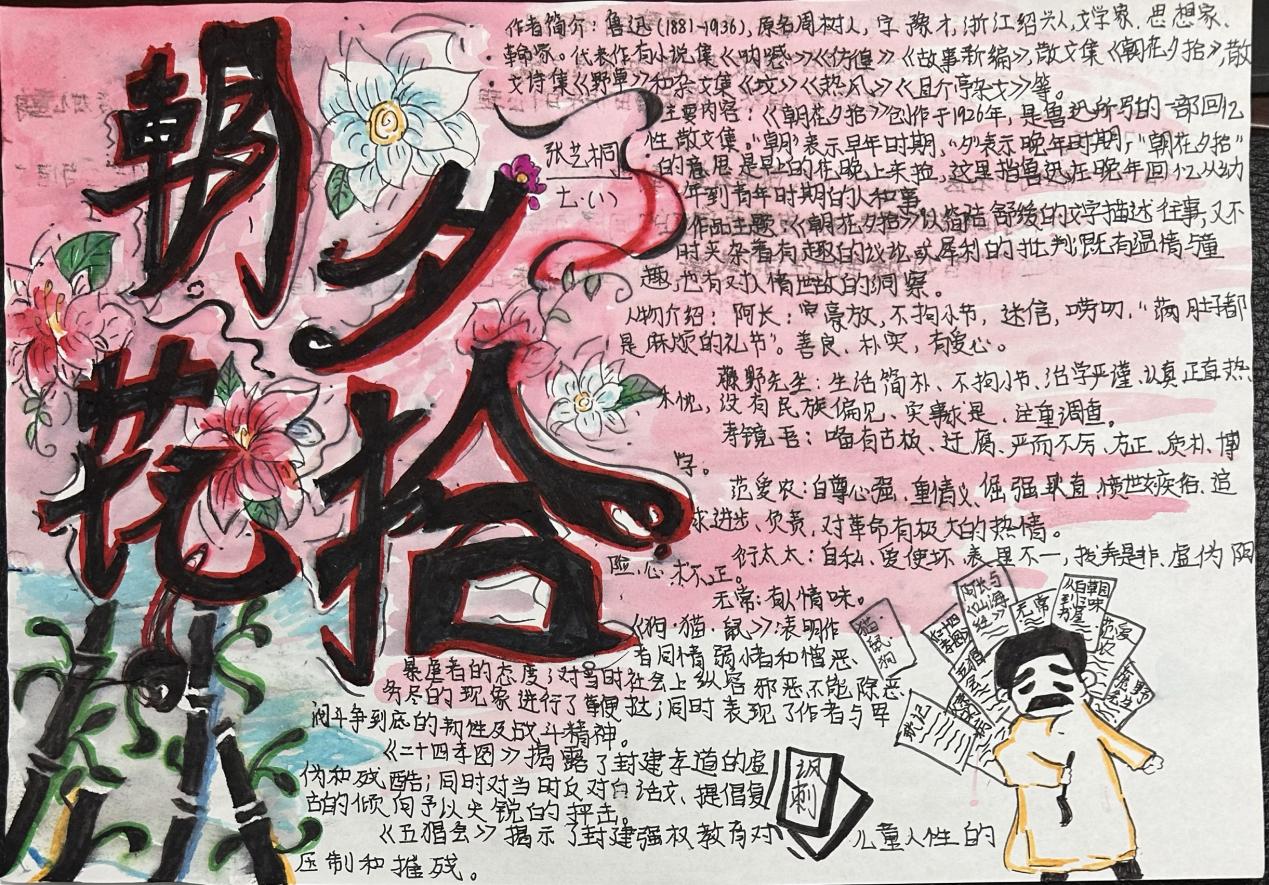 朝花夕拾
张艺桐
七.(1)
作者简介：鲁迅(1881-1936),原名周树人,字豫才,浙江绍兴人,文学家、思想家、
革命家。代表作有小说集《呐喊》《彷徨》《故事新编》,散文集《朝花夕拾》,散
文诗集《野草》和杂文集《坟》《热风》《且介亭杂文》等。
主要内容：《朝花夕拾》创作于1926年,是鲁迅所写的一部回忆
性散文集。"朝"表示早年时期,"夕"表示晚年时期,"朝花夕拾"
的意思是早上的花晚上来捡,这里指鲁迅在晚年回忆从幼
年到青年时期的人和事
作品主题：《朝花夕拾》以简洁舒缓的文字描述往事,又不
时夹杂着有趣的议论或犀利的批判,既有温情与童
趣,也有对人情世故的洞察。
人物介绍：阿长：粗豪放,不拘小节,迷信,唠叨,"满肚子都
是麻烦的礼节"。善良、朴实,有爱心。
藤野先生：生活简朴、不拘小节、治学严谨、认真正直热
忱,没有民族偏见、实事求是、注重调查。
寿镜吾：略有古板、迂腐、严而不厉、方正、质朴、博
学。
范爱农：自尊心强,重情义、倔强耿直、愤世嫉俗、追
求进步、负责,对革命有极大的热情。
衍太太：自私、爱使坏、表里不一,搬弄是非、虚伪阴
险、心术不正。
无常：有人情味。
《狗·猫·鼠》：表明作
者同情弱小者和憎恶、
暴虐者的态度；对当时社会上纵容邪恶,不能除恶
务尽的现象进行了鞭挞；同时表现了作者与黑
斗争到底的韧性及战斗精神。
《二十四孝图》揭露了封建孝道的虚
伪和残酷；同时对当时反对白话文、提倡复
古的倾向予以尖锐的抨击。
《五猖会》揭示了封建强权教育对儿童人性的
压制和摧残。
讽刺
猫·鼠·狗
阿长与山海经
无常
二十四孝图
五猖会
琐记